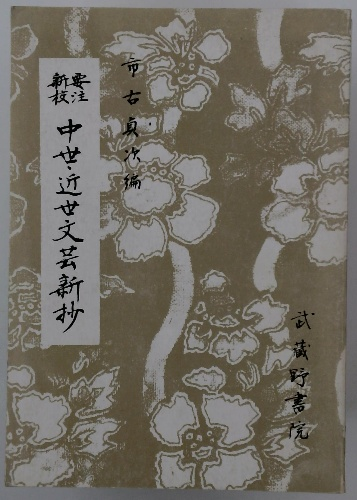 市古貞次編
要注
新校
中世・近世文芸新抄
武蔵野書院